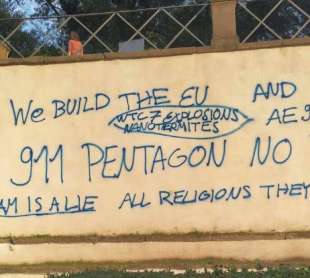 WE BUILD THE EU AND
WTC7 EXPLOSIONS AE9
NANOTERMITES
911 PENTAGON NO
AM IS A LIE ALL RELIGIONS THEY